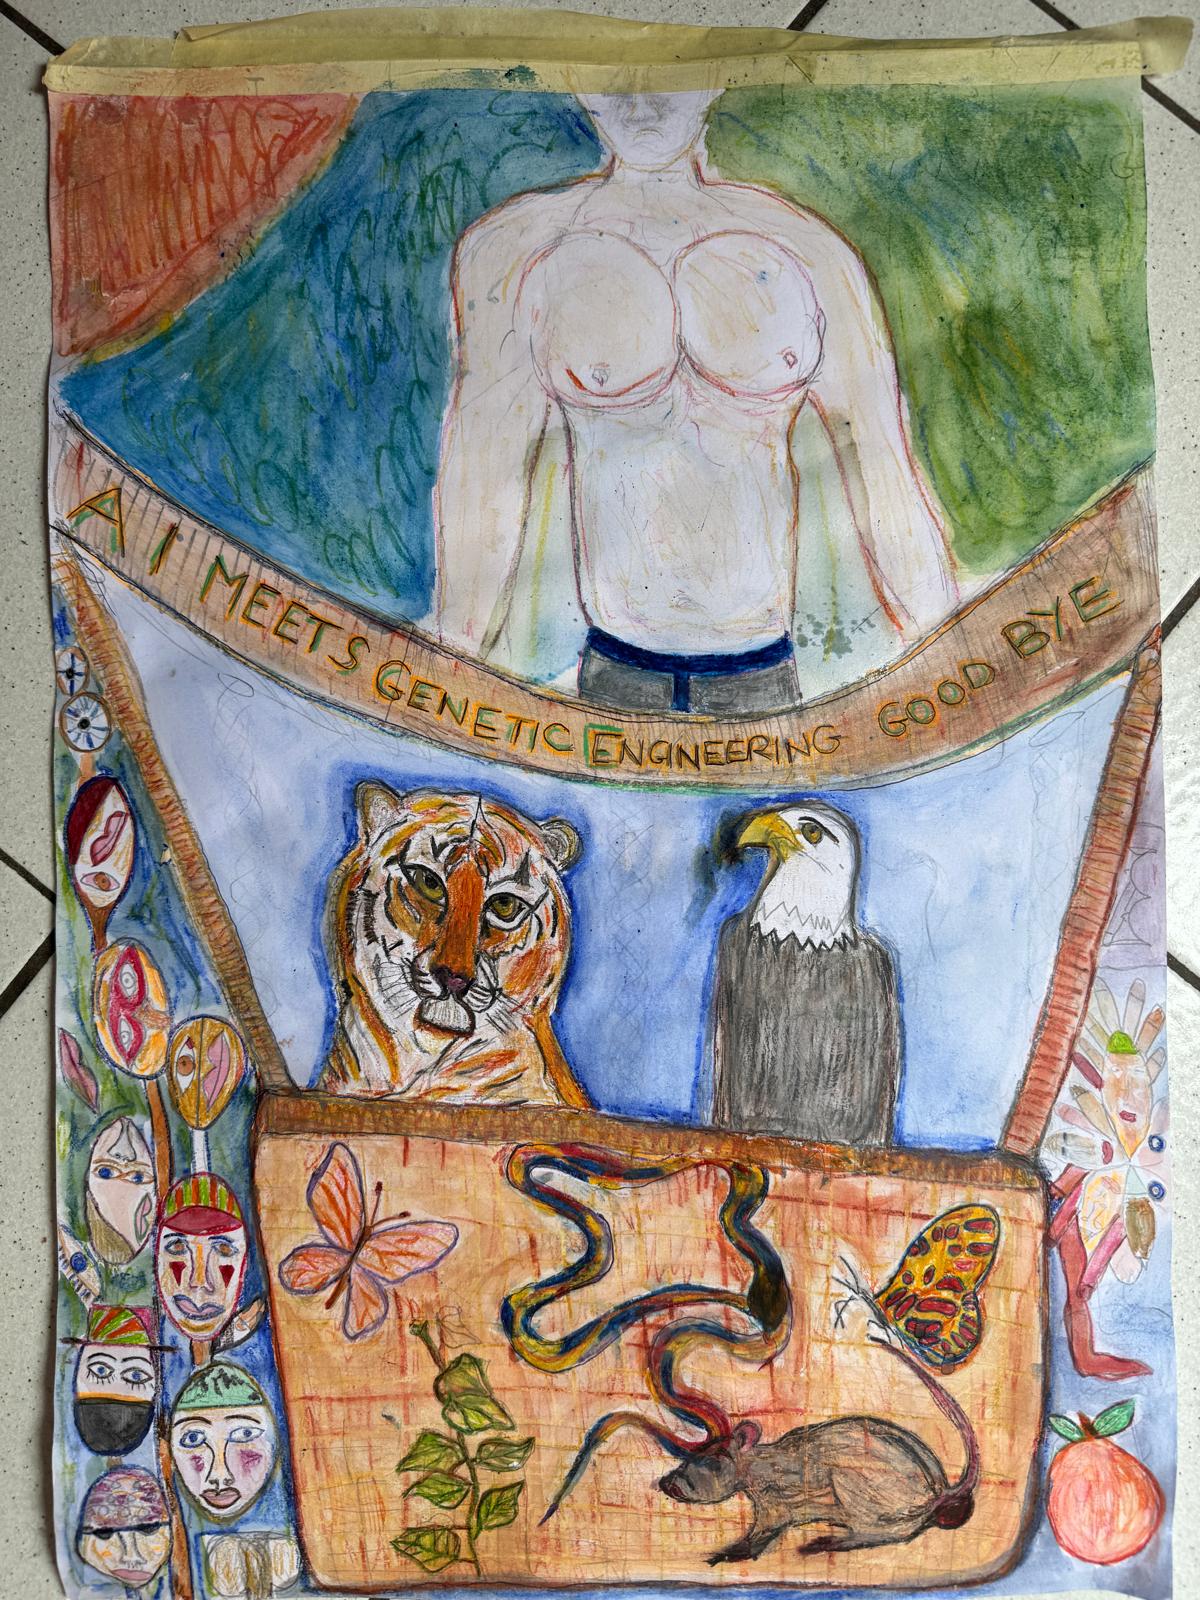 AI MEETS GENETIC ENGINEERING GOOD BYE